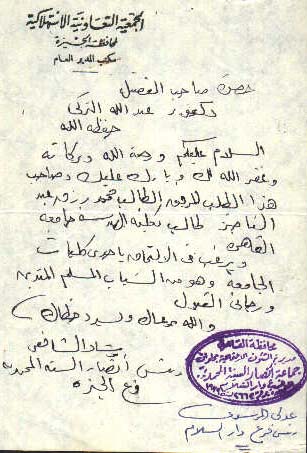 الجمعية التعاونية الاستهلاكية
لمحافظة الجيزة
مكتب المدير العام
حضرة صاحب الفضل
دكتور عبد الله التركي
حفظه الله
السلام عليكم ورحمة الله وبركاته
وغفر الله لك وبارك عليك وصاحب
هذا الطلب المرفق الطالب محمد رزق عبد
الناصر طالب بكلية الهندسة جامعة
القاهرة
ويرغب في الالتحاق بإحدى كليات
الجامعة وهو من الشباب المسلم المتدين
ورجائي القبول
والله يرعاك ويسدد خطاك
رشاد الشافعي
رئيس أنصار السنة المحمدية
فرع الجيزة
محافظة القاهرة
مديرية الشئون الاجتماعية
جماعة أنصار السنة المحمدية
فرع دار السلام
رئيس فرع دار السلام